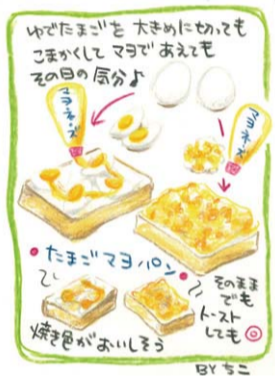 ゆでたまごを 大きめに切っても
こまかくして マヨで あえても
その日の 気分♪
マヨネーズ
マヨネーズ
たまごマヨパン
そのまま
でも
トースト
しても◎
焼き色がおいしそう
BY ちこ